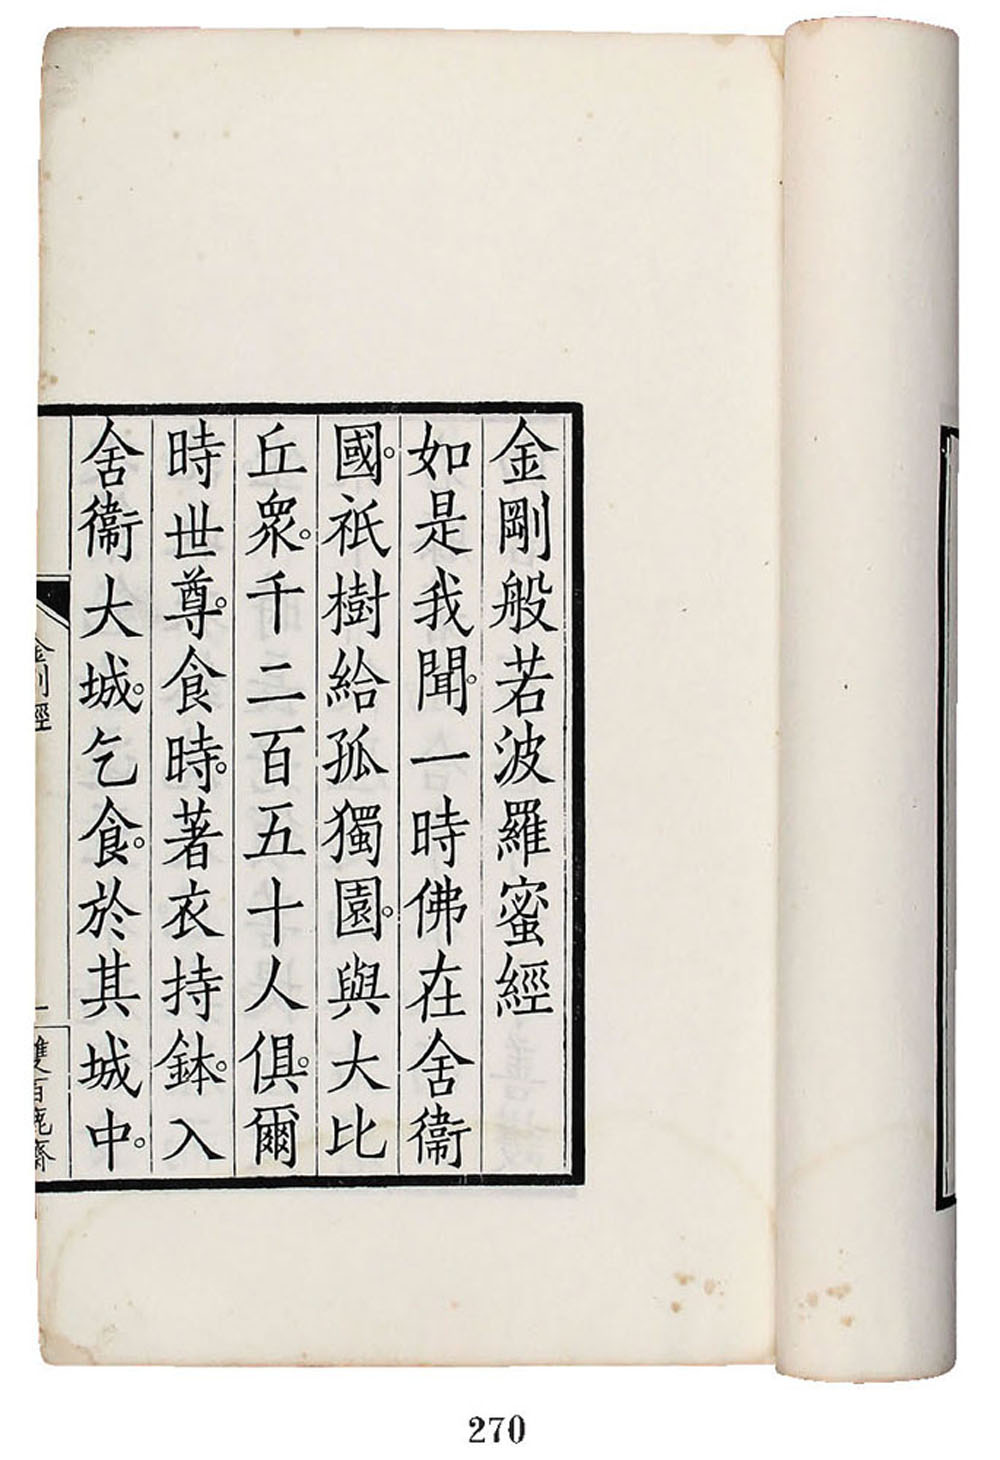 金剛般若波羅蜜經
如是我聞。一時佛在舍衞
國。祇樹給孤獨園。與大比
丘衆。千二百五十人俱。爾
時世尊。食時。著衣持鉢。入
舍衞大城。乞食。於其城中。
金剛經
一
雙百鹿齋
270